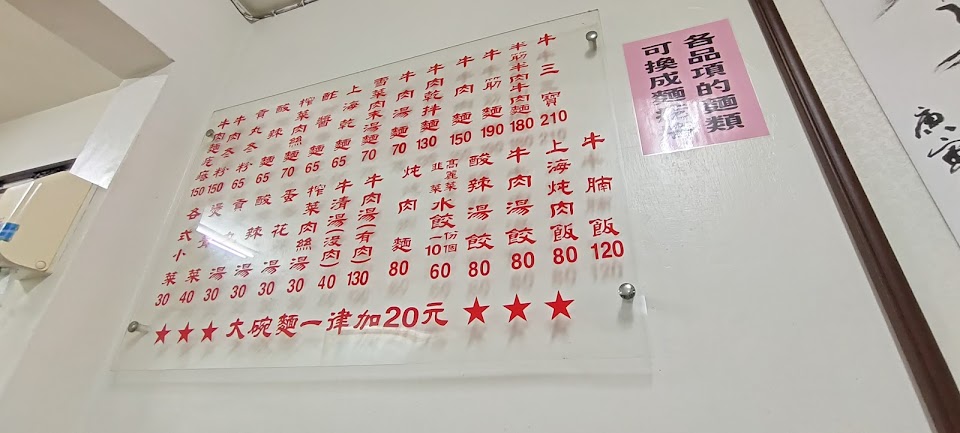 牛三寶 210
半筋半肉牛肉麵 180
牛筋麵 190
牛肉麵 150
牛肉乾拌麵 130
牛肉湯麵 70
雪菜肉末湯麵 70
上海乾麵 65
酢醬麵 65
榨菜肉絲麵 70
酸辣麵 70
貢丸冬粉 65
牛肉冬粉 150
150
牛腩飯 120
上海炖肉飯 80
牛肉湯餃 80
酸辣湯餃 80
高麗菜 韭菜 水餃一份10個 60
炖肉麵 80
牛肉湯(有肉) 130
牛清湯(沒肉) 40
榨菜肉絲湯 30
蛋花湯 30
酸辣湯 30
貢丸湯 30
菜 40
各式小菜 30
★★★大碗麵一律加20元★★★
各品項的麵類
可換成麵
庚寅